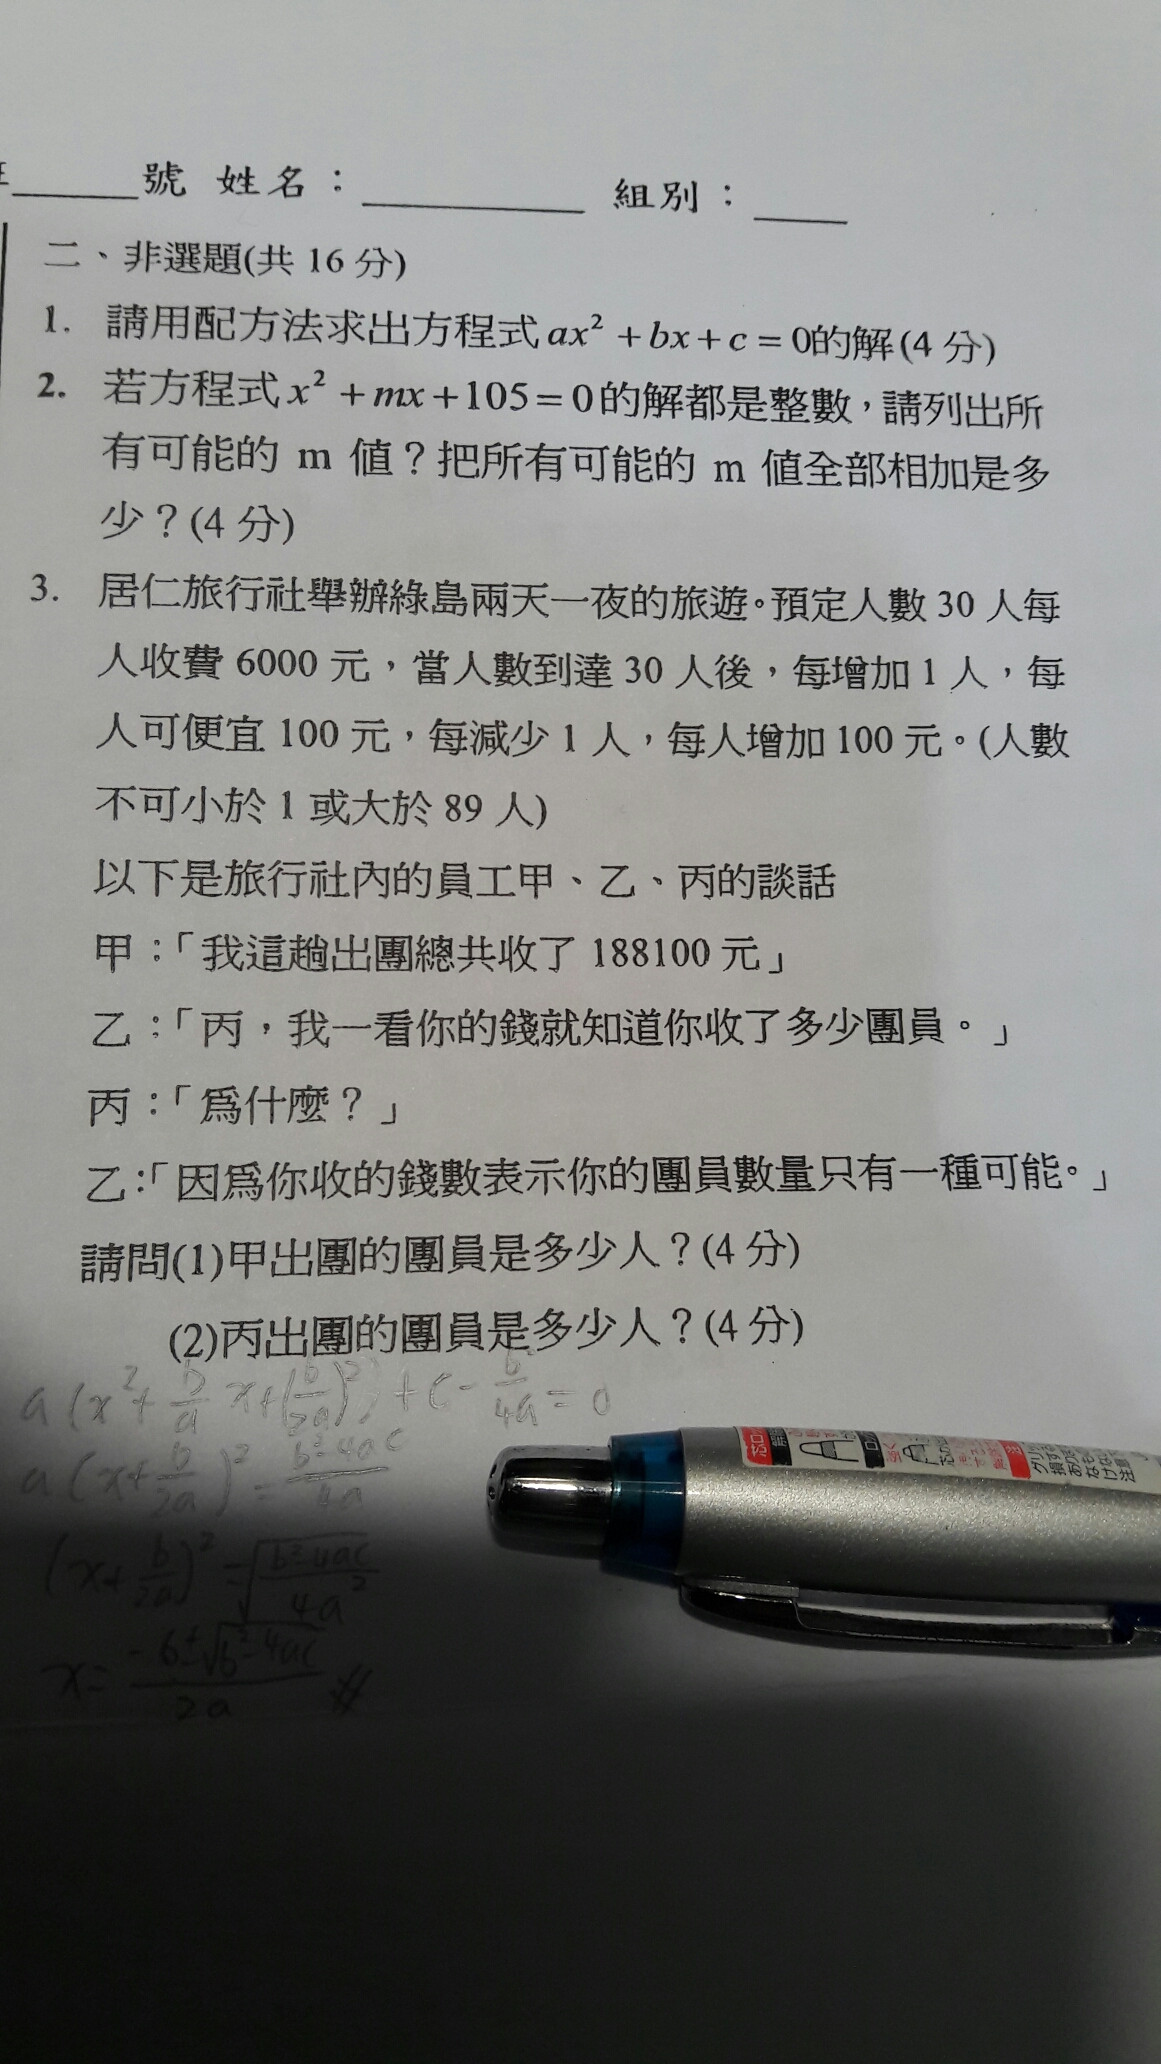 號 姓名：________ 組別：____
二、非選題(共 16 分)
1. 請用配方法求出方程式 ax² + bx + c = 0的解(4 分)
2. 若方程式 x² + mx + 105 = 0的解都是整數，請列出所
有可能的 m 值？把所有可能的 m 值全部相加是多
少？(4 分)
3. 居仁旅行社舉辦綠島兩天一夜的旅遊。預定人數 30 人每
人收費 6000 元，當人數到達 30 人後，每增加 1 人，每
人可便宜 100 元，每減少 1 人，每人增加 100 元。(人數
不可小於 1 或大於 89 人)
以下是旅行社內的員工甲、乙、丙的談話
甲：「我這趟出團總共收了 188100 元」
乙：「丙，我一看你的錢就知道你收了多少團員。」
丙：「為什麼？」
乙：「因為你收的錢數表示你的團員數量只有一種可能。」
請問(1)甲出團的團員是多少人？(4 分)
(2)丙出團的團員是多少人？(4 分)
a(x²+b/a x+(b/2a)²)+c-b²/4a=0
a(x+b/2a)²=b²-4ac/4a
(x+b/2a)²=√b²-4ac/4a²
x=-b±√b²-4ac/2a #